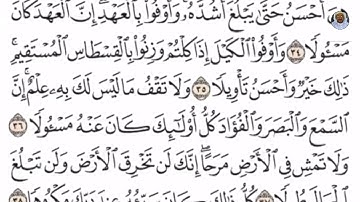 أَحْسَنُ حَتَّىٰ يَبْلُغَ أَشُدَّهُۥ وَأَوْفُوا۟ بِٱلْعَهْدِ إِنَّ ٱلْعَهْدَ كَانَ
مَسْـُٔولًا ٣٤ وَأَوْفُوا۟ ٱلْكَيْلَ إِذَا كِلْتُمْ وَزِنُوا۟ بِٱلْقِسْطَاسِ ٱلْمُسْتَقِيمِ
ذَٰلِكَ خَيْرٌ وَأَحْسَنُ تَأْوِيلًا ٣٥ وَلَا تَقْفُ مَا لَيْسَ لَكَ بِهِۦ عِلْمٌ إِنَّ
ٱلسَّمْعَ وَٱلْبَصَرَ وَٱلْفُؤَادَ كُلُّ أُو۟لَـٰٓئِكَ كَانَ عَنْهُ مَسْـُٔولًا ٣٦
وَلَا تَمْشِ فِى ٱلْأَرْضِ مَرَحًا إِنَّكَ لَن تَخْرِقَ ٱلْأَرْضَ وَلَن تَبْلُغَ
ٱلْجِبَالَ طُولًا ٣٧ كُلُّ ذَٰلِكَ كَانَ سَيِّئُهُۥ عِندَ رَبِّكَ مَكْرُوهًا ٣٨